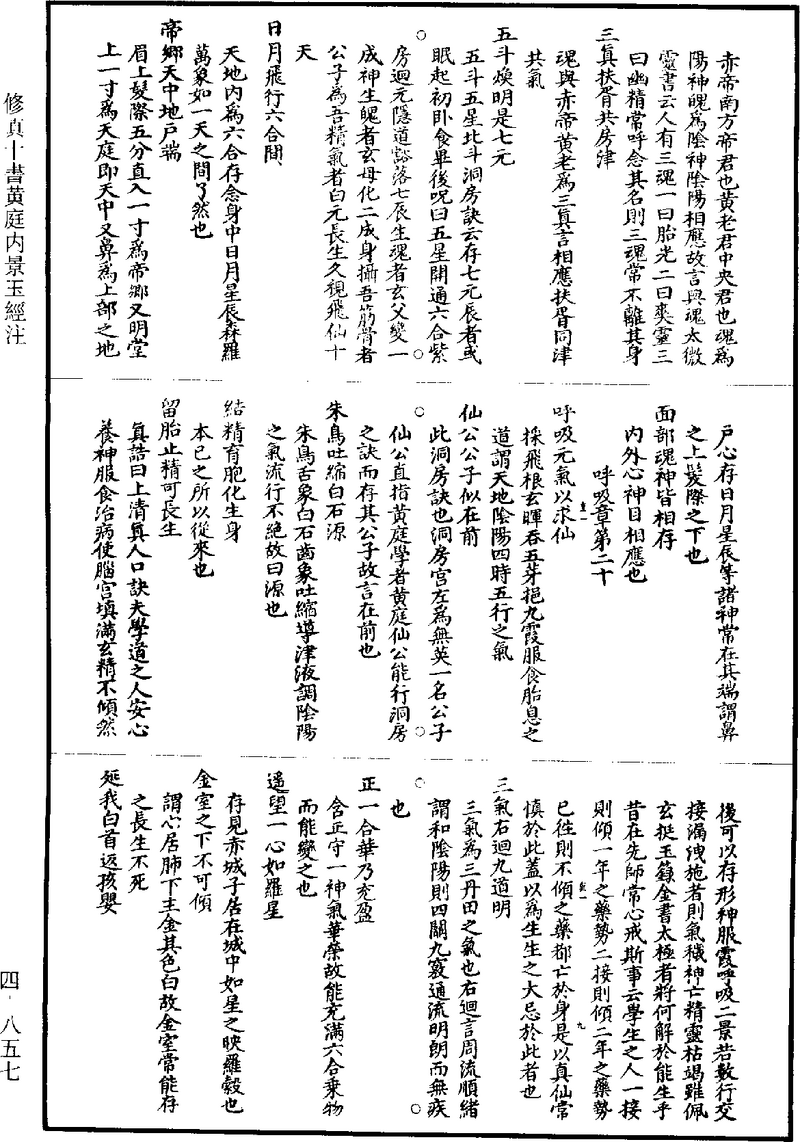 修真十書黃庭內景玉經注
四·八五七
赤帝南方帝君也黃老君中央君也魂為
陽神魄為陰神陰陽相應故言與魂太微
靈書云人有三魂一曰胎光二曰爽靈三
曰幽精常呼念其名則三魂常不離其身
三真扶胥共房津
魂與赤帝黃老為三真言相應扶胥同津
共氣
五斗煥明是七元
五斗五星北斗洞房訣云存七元辰者或
眠起初卧食畢後呪曰五星開通六合紫
房迴元隱道豁落七辰生魂者玄父變一
成神生魄者玄母化二成身攝吾筋骨者
公子為吾精氣者白元長生久視飛仙十
天
日月飛行六合間
天地內為六合存念身中日月星辰森羅
萬象如一天之間了然也
帝鄉天中地戶端
眉上髮際五分直入一寸為帝鄉又明堂
上一寸為天庭即天中又鼻為上部之地
戶心存日月星辰等諸神常在其端謂鼻
之上髮際之下也
面部魂神皆相存
內外心神目相應也
呼吸章第二十
呼吸元氣以求仙
採飛根玄暉吞五芽挹九霞服食胎息之
道謂天地陰陽四時五行之氣
仙公公子似在前
此洞房訣也洞房宮左為無英一名公子
仙公直指黃庭學者黃庭仙公能行洞房
之訣而存其公子故言在前也
朱鳥吐縮白石源
朱鳥舌象白石齒象吐縮導津液調陰陽
之氣流行不絕故曰源也
結精育胞化生身
本已之所以從來也
留胎止精可長生
真誥曰上清真人口訣夫學道之人安心
養神服食治病使腦宮填滿玄精不傾然
後可以存形神服霞呼吸二景若數行交
接漏洩施者則氣穢神亡精靈枯竭雖佩
玄挺玉籙金書太極者將何解於能生乎
昔在先師常心戒斯事云學生之人一接
則傾一年之藥勢二接則傾二年之藥勢
已往則不傾之藥都亡於身是以真仙常
慎於此蓋以為生生之大忌於此者也
三氣右迴九道明
三氣為三丹田之氣也右迴言周流順緒
謂和陰陽則四關九竅通流明朗而無疾
也
正一合華乃充盈
含正守一神氣華榮故能充滿六合乘物
而能變之也
遥望一心如羅星
存見赤城子居在城中如星之映羅縠也
金室之下不可傾
謂心居肺下主金其色白故金室常能存
之長生不死
延我白首返孩嬰